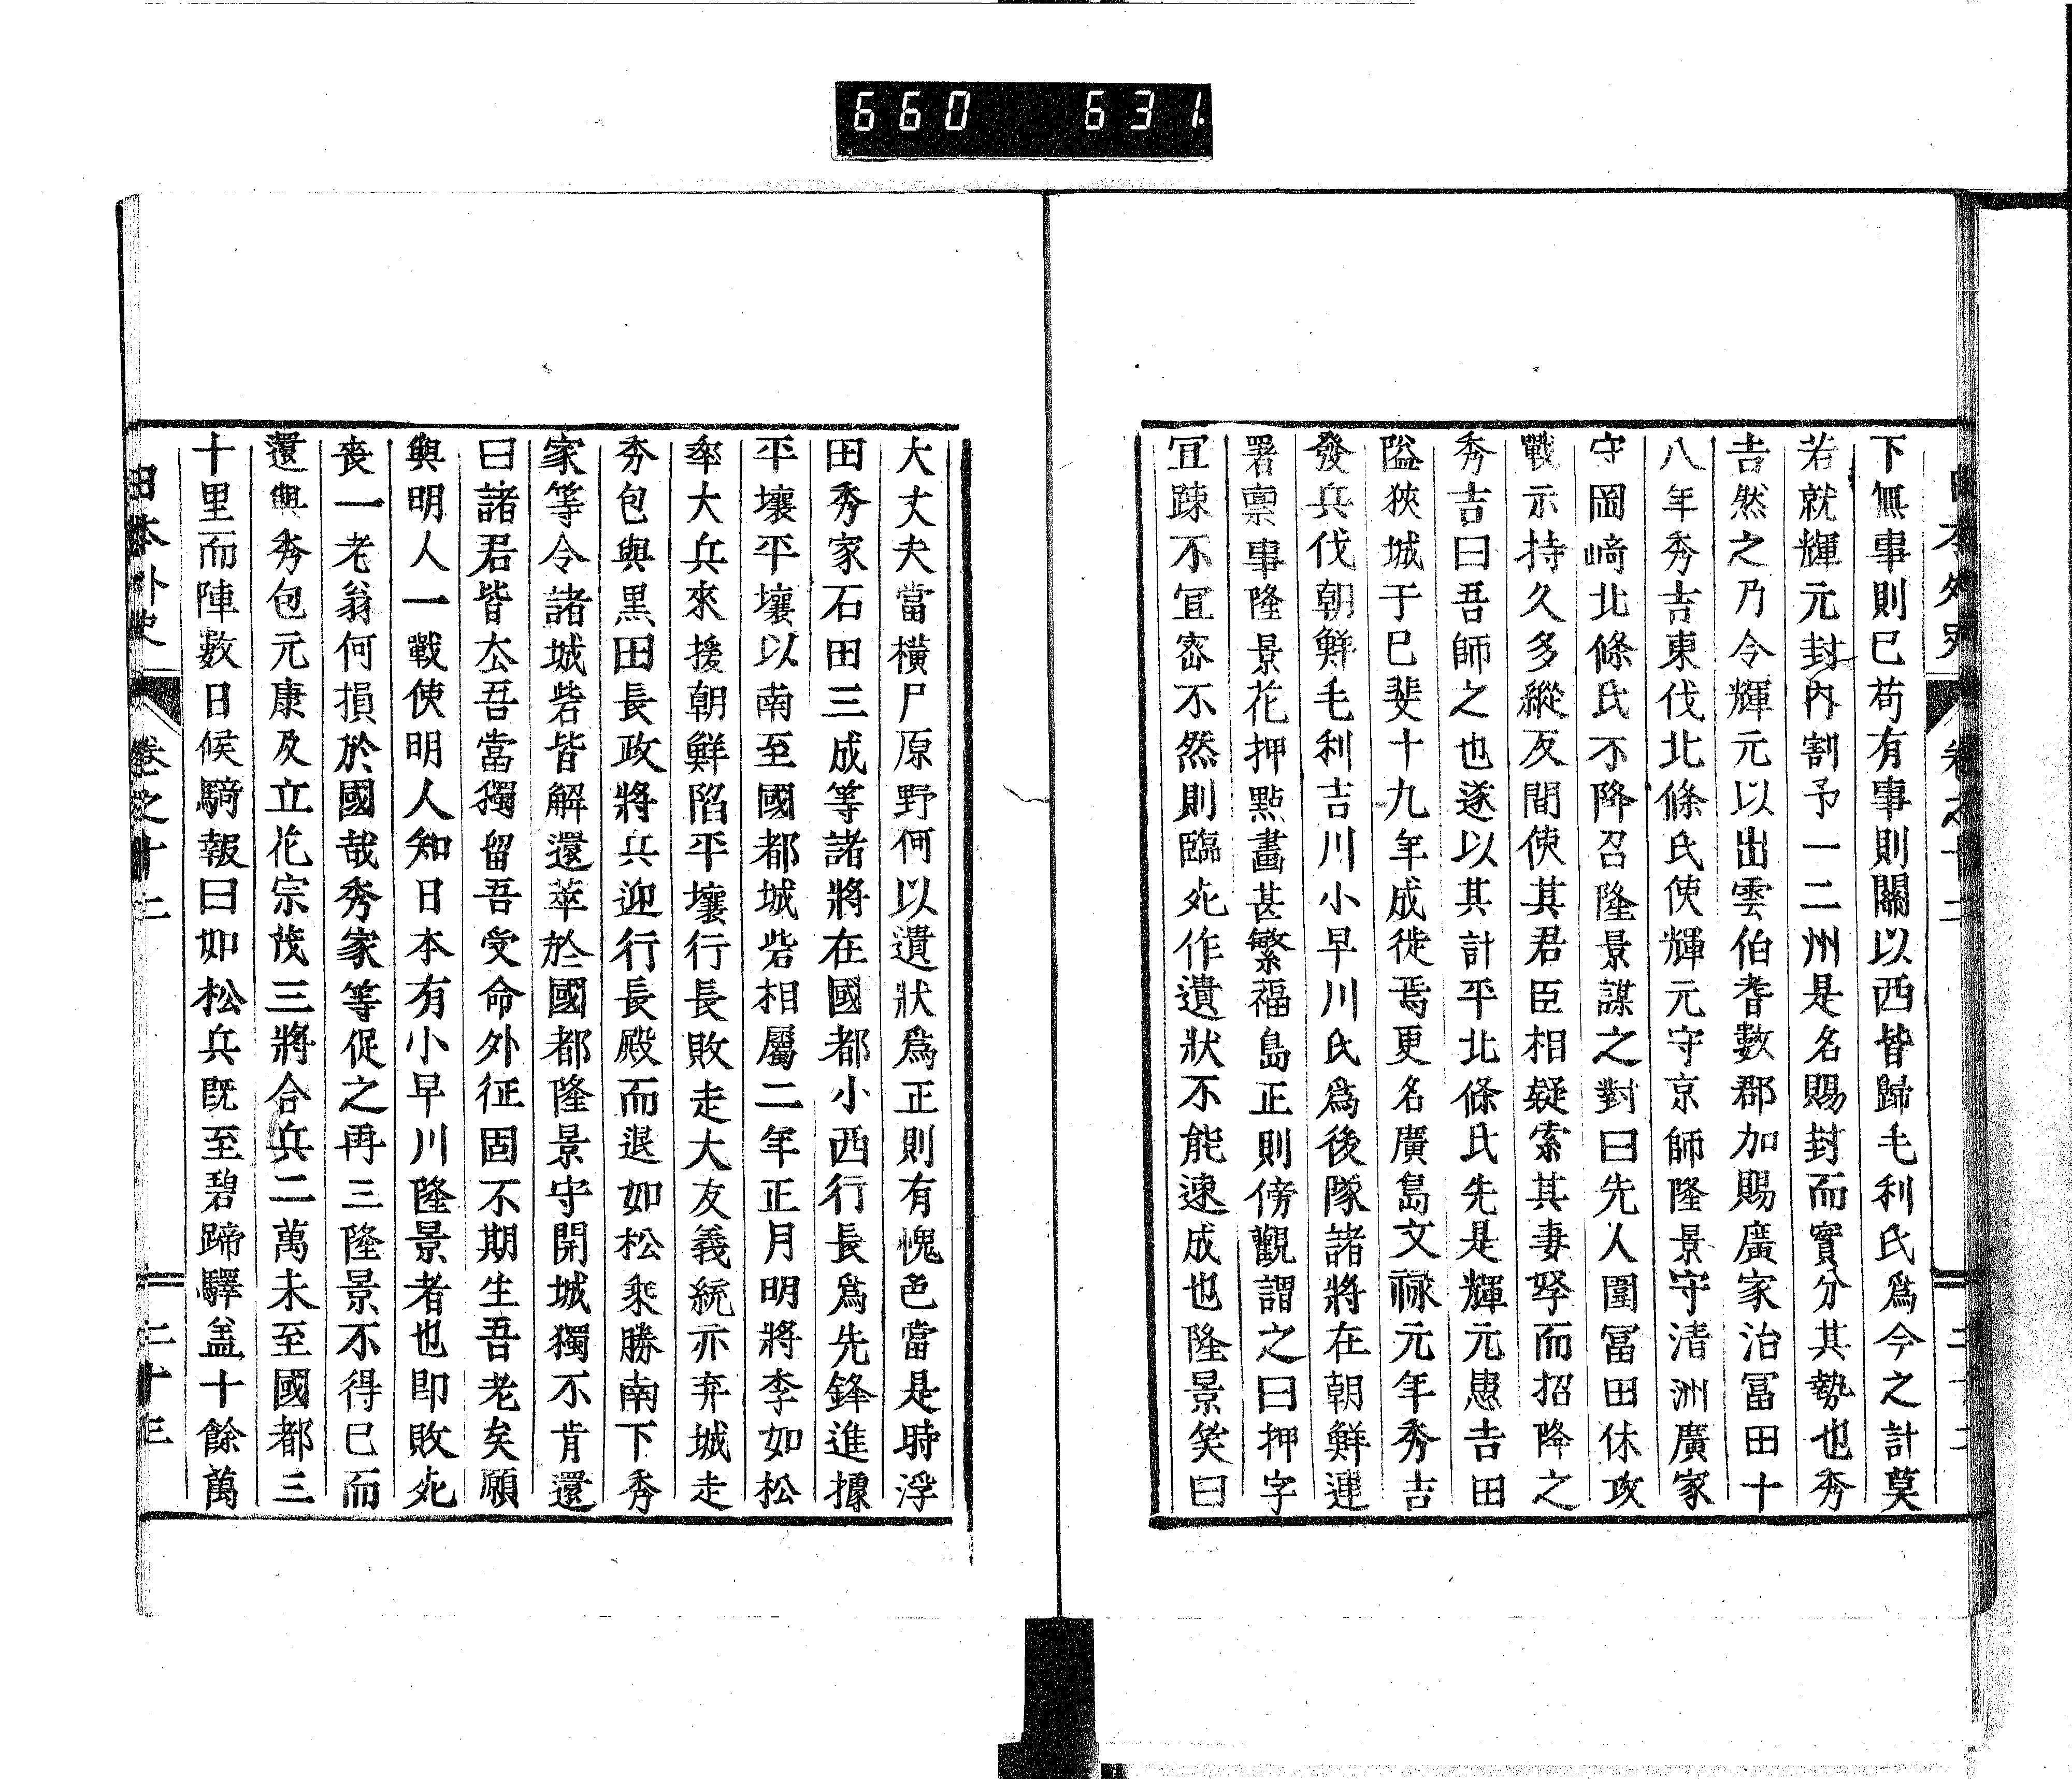 660 631.
日本外史 卷之十二 二十二
下無事則已苟有事則關以西皆歸毛利氏爲今之計莫
若就輝元封內割予一二州是名賜封而實分其勢也秀
吉然之乃令輝元以出雲伯耆數郡加賜廣家治冨田十
八年秀吉東伐北條氏使輝元守京師隆景守清洲廣家
守岡崎北條氏不降召隆景謀之對曰先人圍冨田休攻
戰示持久多縱反間使其君臣相疑索其妻孥而招降之
秀吉曰吾師之也遂以其計平北條氏先是輝元患吉田
隘狹城于已斐十九年成徙焉更名廣島文祿元年秀吉
發兵伐朝鮮毛利吉川小早川氏爲後隊諸將在朝鮮連
署禀事隆景花押㸃畫甚繁福島正則傍觀謂之曰押字
宜踈不宜宻不然則臨死作遺狀不能速成也隆景笑曰
大丈夫當橫尸原野何以遺狀爲正則有愧色當是時浮
田秀家石田三成等諸將在國都小西行長爲先鋒進據
平壤平壤以南至國都城砦相屬二年正月明將李如松
率大兵來援朝鮮陷平壤行長敗走大友義統亦弃城走
秀包與黑田長政將兵迎行長殿而退如松乘勝南下秀
家等令諸城砦皆解還萃於國都隆景守開城獨不肯還
曰諸君皆厺吾當獨留吾受命外征固不期生吾老矣願
與明人一戰使明人知日本有小早川隆景者也即敗死
喪一老翁何損於國哉秀家等促之再三隆景不得已而
還與秀包元康及立花宗茂三將合兵二萬未至國都三
十里而陣數日候騎報曰如松兵既至碧蹄驛盖十餘萬
日本外史 卷之十二 二十三